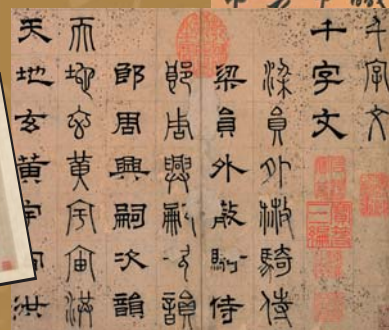 千字文
千字文
梁員外散騎侍
梁員外散騎侍
郎周興嗣次韻
郎周興嗣次韻
天地玄黃宇宙洪
天地玄黃宇宙洪
寶笈三編